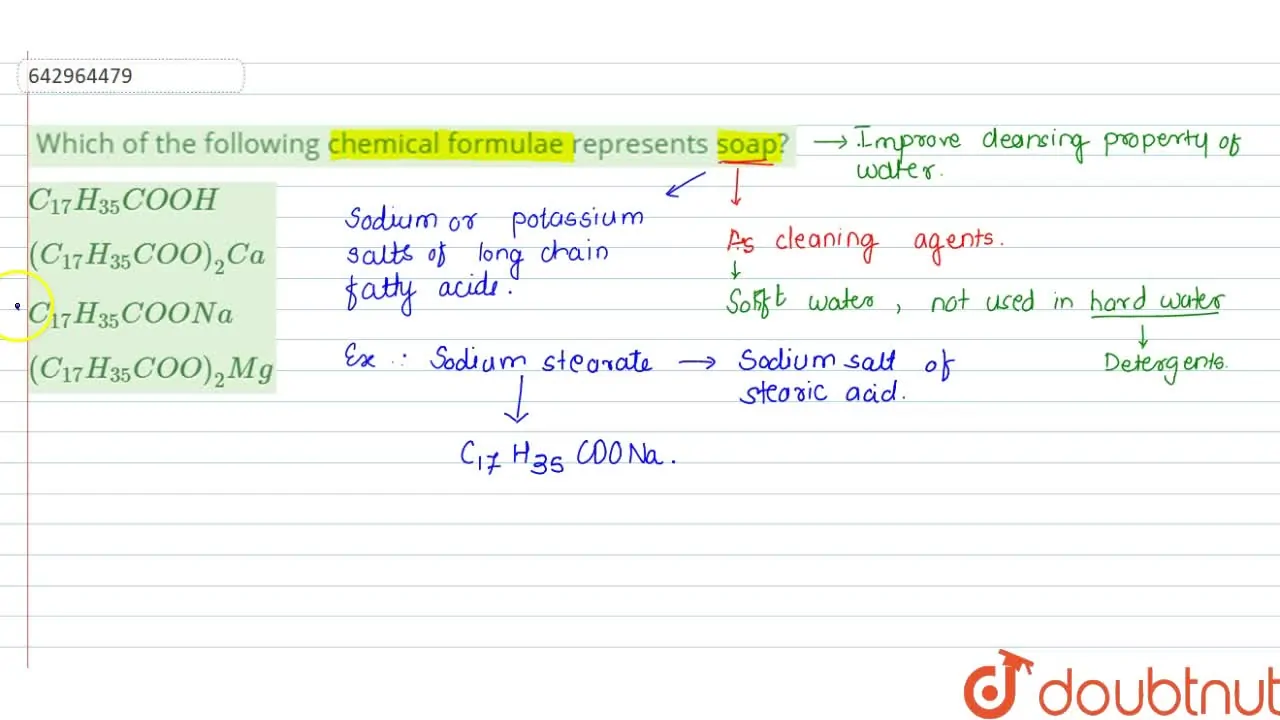 642964479
Which of the following chemical formulae represents soap?
→ Improve cleansing property of
water.
C₁₇H₃₅COOH
(C₁₇H₃₅COO)₂Ca
C₁₇H₃₅COONa
(C₁₇H₃₅COO)₂Mg
Sodium or potassium
salts of long chain
fatty acids.
As cleaning agents.
↓
Soft water, not used in hard water
↓
Detergents.
Ex :- Sodium stearate → Sodium salt of
stearic acid.
↓
C₁₇ H₃₅ COONa.
doubtnut